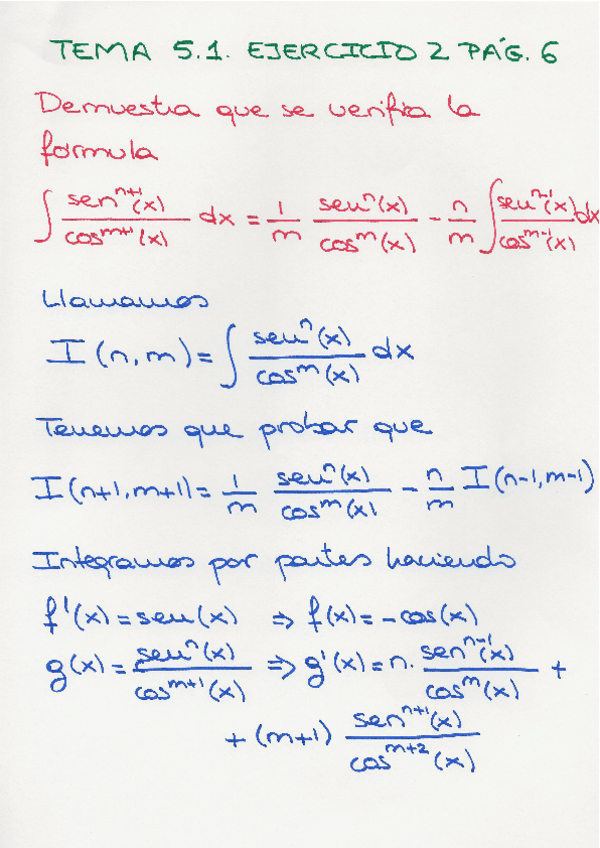 TEMA 5.1. EJERCICIO 2 PÁG. 6
Demuestra que se verifica la
fórmula
∫ senⁿ⁺¹(x)/cosᵐ⁺¹(x) dx = 1/m senⁿ(x)/cosᵐ(x) - n/m ∫ senⁿ⁻¹(x)/cosᵐ⁻¹(x) dx
Llamamos
I(n,m) = ∫ senⁿ(x)/cosᵐ(x) dx
Tenemos que probar que
I(n+1,m+1) = 1/m senⁿ(x)/cosᵐ(x) - n/m I(n-1,m-1)
Integramos por partes haciendo
f'(x) = sen(x) ⇒ f(x) = -cos(x)
g(x) = senⁿ(x)/cosᵐ⁺¹(x) ⇒ g'(x) = n. senⁿ⁻¹(x)/cosᵐ(x) +
+ (m+1) senⁿ⁺¹(x)/cosᵐ⁺²(x)